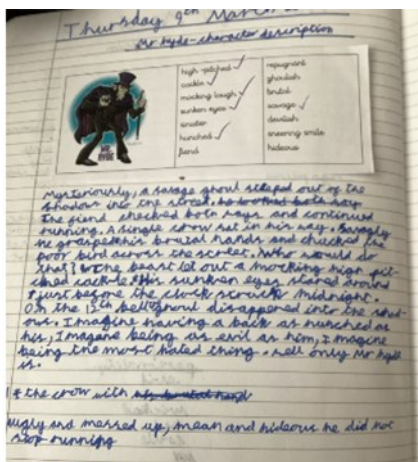 Thursday 9th March
Mr Hyde - character description
high-pitched
cackle
mocking laugh
sunken eyes
sinister
hunched
fiend
repugnant
ghoulish
brutal
savage
devilish
sneering smile
hideous
MR HYDE
Mysteriously, a savage ghoul steped out of the
shadows into the street.
The fiend checked both ways and continued
running. A single crow sat in his way. Savagly
he grasped his brutal hands and chucked the
poor bird across the street. Who would do
that? the beast let out a mocking high pit-
ched cackle. His sunken eyes stared around
just before the clock struck midnight.
On the 12th bell ghoul disappeared into the shad-
ows. Imagine having a back as hunched as
his, Imagane being as evil as him, I magine
being the most hated thing. well only Mr Hyde
is.
* the crow with his brutal hand
ugly and messed up, mean and hideous he did not
stop running